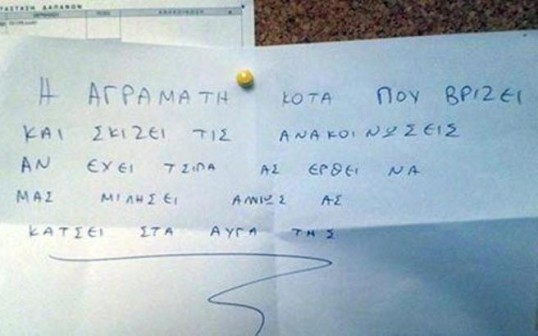 ΤΑΣΤΑΣΗ ΔΑΠΑΝΩΝ
Η ΑΓΡΑΜΑΤΗ ΚΟΤΑ ΠΟΥ ΒΡΙΖΕΙ
ΚΑΙ ΣΚΙΖΕΙ ΤΙΣ ΑΝΑΚΟΙΝΩΣΕΙΣ
ΑΝ ΕΧΕΙ ΤΣΙΠΑ ΑΣ ΕΡΘΕΙ ΝΑ
ΜΑΣ ΜΙΛΗΣΕΙ ΑΛΛΙΩΣ ΑΣ
ΚΑΤΣΕΙ ΣΤΑ ΑΥΓΑ ΤΗΣ